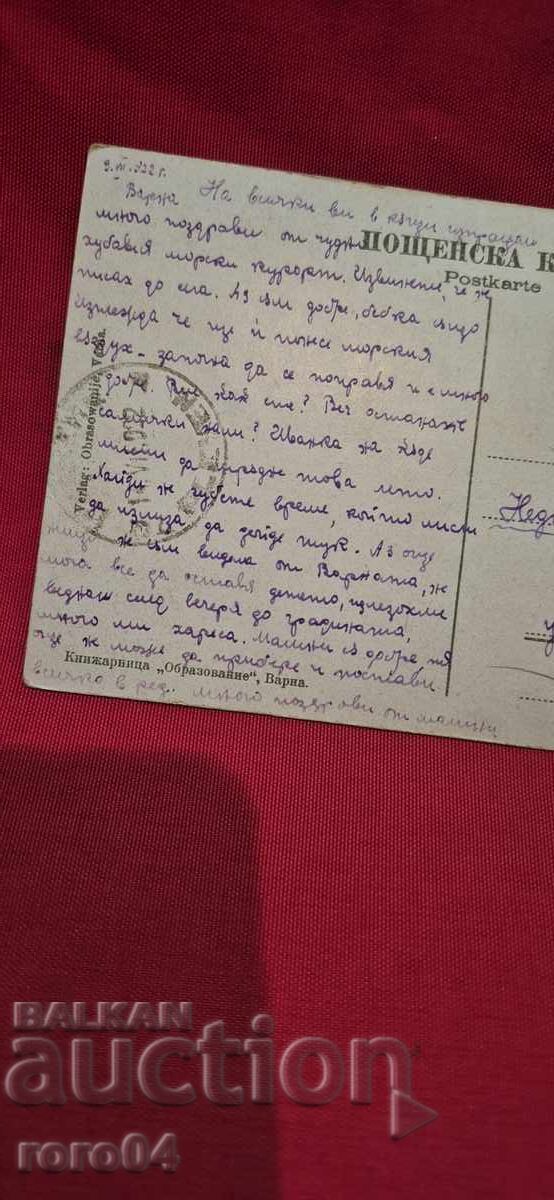 9. III. 922 г.
Варна На всички ви в къщи изпращам
много поздрави от чудно
хубавия морски курорт. Извинете, че не
писах до сега. Аз съм добре, бебка също
изглежда че ще ѝ понесе морския
въздух - започна да се поправя и е много
добре. Вие как сте? Вече останахте
самички нали? Иванка на къде
мисли да
Хайди не губете време, който мисли
да излиза, да дойде тук. Аз още
нищо не съм видела от Варната, не
мога все да оставя детето, излезохме
веднъж след вечеря до градината,
много ми хареса. Машини са добре, тя
още не може да прибере и постави
всичко в ред. Много поздрави от машини
ПОЩЕНСКА К
Postkarte
Verlag: Obrasowanije, Varna.
Книжарница „Образование“, Варна.
BALKAN
auction
roro04